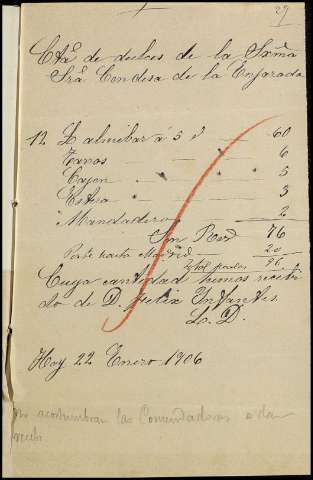 29
Cta de dulces de la Exma
Sra Condesa de la Enjarada
12 L almibar a 5 r 60
Tarros 6
Cajon 5
Estera 3
Mandadero 2
Son Rs 76
Porte hasta Madrid 20
Total reales 96
Cuya cantidad hemos recibi
do de D. Felix Infantes
La D.
Hoy 22 Enero 1906
No acostumbran las Comendadoras a dar
recibo